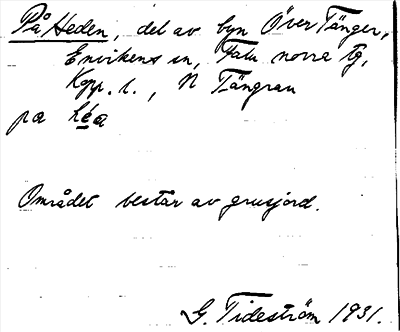 På Heden, del av byn Över Tänger,
Envikens sn, Falu norra tg,
Kopp. l., N Tängran
pa héa
Området består av grusjord.
G. Tideström 1931.